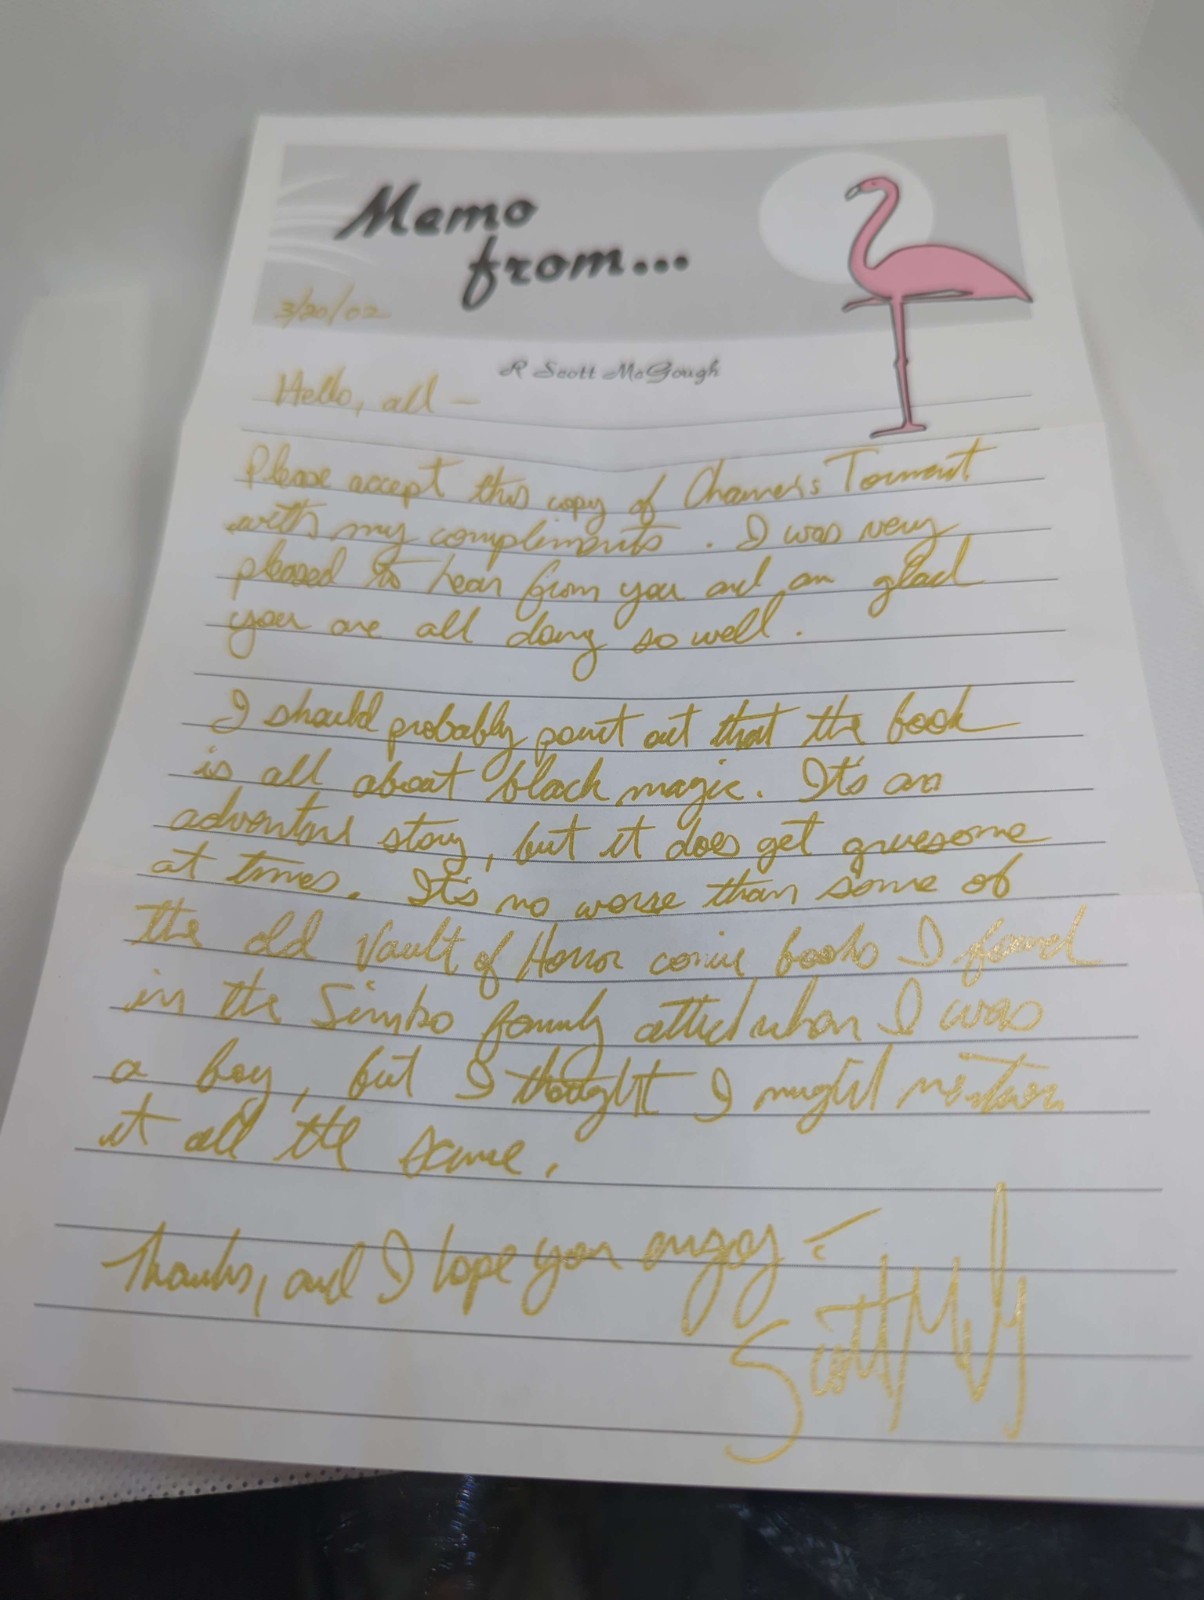 Memo
from...
3/20/02
R Scott McGough
Hello, all —
Please accept this copy of Chainer's Torment
with my compliments. I was very
pleased to hear from you and am glad
you are all doing so well.
I should probably point out that the book
is all about black magic. It's an
adventure story, but it does get gruesome
at times. It's no worse than some of
the old Vault of Horror comic books I found
in the family attic when I was
a boy, but I thought I might mention
it all the same.
Thanks, and I hope you enjoy —
Scott McG